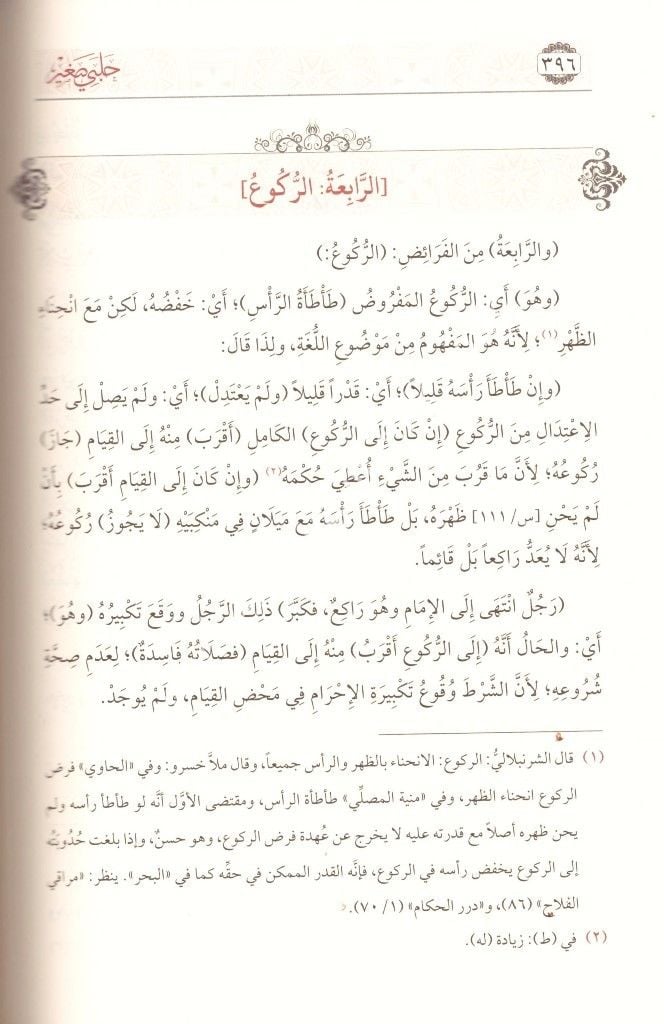 ٣٩٦
حلبي صغير
[الرَّابِعَةُ: الرُّكُوعُ]
(والرَّابِعَةُ) مِنَ الفَرَائِضِ: (الرُّكُوعُ:)
(وهُوَ) أَيِ: الرُّكُوعُ المَفْرُوضُ (طَأْطَأَةُ الرَّأْسِ)؛ أَيْ: خَفْضُهُ، لَكِنْ مَعَ انْحِنَاءِ
الظَّهْرِ(١)؛ لِأَنَّهُ هُوَ المَفْهُومُ مِنْ مَوْضُوعِ اللُّغَةِ، ولِذَا قَالَ:
(وإِنْ طَأْطَأَ رَأْسَهُ قَلِيلاً)؛ أَيْ: قَدْراً قَلِيلاً (ولَمْ يَعْتَدِلْ)؛ أَيْ: ولَمْ يَصِلْ إِلَى حَدِّ
الِاعْتِدَالِ مِنَ الرُّكُوعِ (إِنْ كَانَ إِلَى الرُّكُوعِ) الكَامِلِ (أَقْرَبَ) مِنْهُ إِلَى القِيَامِ (جَازَ)
رُكُوعُهُ؛ لِأَنَّ مَا قَرُبَ مِنَ الشَّيْءِ أُعْطِيَ حُكْمَهُ(٢) (وإِنْ كَانَ إِلَى القِيَامِ أَقْرَبَ) بِأَنْ
لَمْ يَحْنِ [س/ ١١١] ظَهْرَهُ، بَلْ طَأْطَأَ رَأْسَهُ مَعَ مَيَلَانٍ فِي مَنْكِبَيْهِ (لَا يَجُوزُ) رُكُوعُهُ؛
لِأَنَّهُ لَا يُعَدُّ رَاكِعاً بَلْ قَائِماً.
(رَجُلٌ انْتَهَى إِلَى الإِمَامِ وهُوَ رَاكِعٌ، فكَبَّرَ) ذَلِكَ الرَّجُلُ ووَقَعَ تَكْبِيرُهُ (وهُوَ)؛
أَيْ: والحَالُ أَنَّهُ (إِلَى الرُّكُوعِ أَقْرَبُ) مِنْهُ إِلَى القِيَامِ (فصَلَاتُهُ فَاسِدَةٌ)؛ لِعَدَمِ صِحَّةِ
شُرُوعِهِ؛ لِأَنَّ الشَّرْطَ وُقُوعُ تَكْبِيرَةِ الإِحْرَامِ فِي مَحْضِ القِيَامِ، ولَمْ يُوجَدْ.
(١) قال الشرنبلاليُّ: الركوع: الانحناء بالظهر والرأس جميعاً، وقال ملاَّ خسرو: وفي «الحاوي» فرض
الركوع انحناء الظهر، وفي «منية المصلِّي» طأطأة الرأس، ومقتضى الأوَّل أنَّه لو طأطأ رأسه ولم
يحن ظهره أصلاً مع قدرته عليه لا يخرج عن عُهدة فرض الركوع، وهو حسنٌ، وإذا بلغت حُدُوبَتُه
إلى الركوع يخفض رأسه في الركوع، فإنَّه القدر الممكن في حقِّه كما في «البحر». ينظر: «مراقي
الفلاح» (٨٦)، و«درر الحكام» (١/ ٧٠).
(٢) في (ط): زيادة (له).